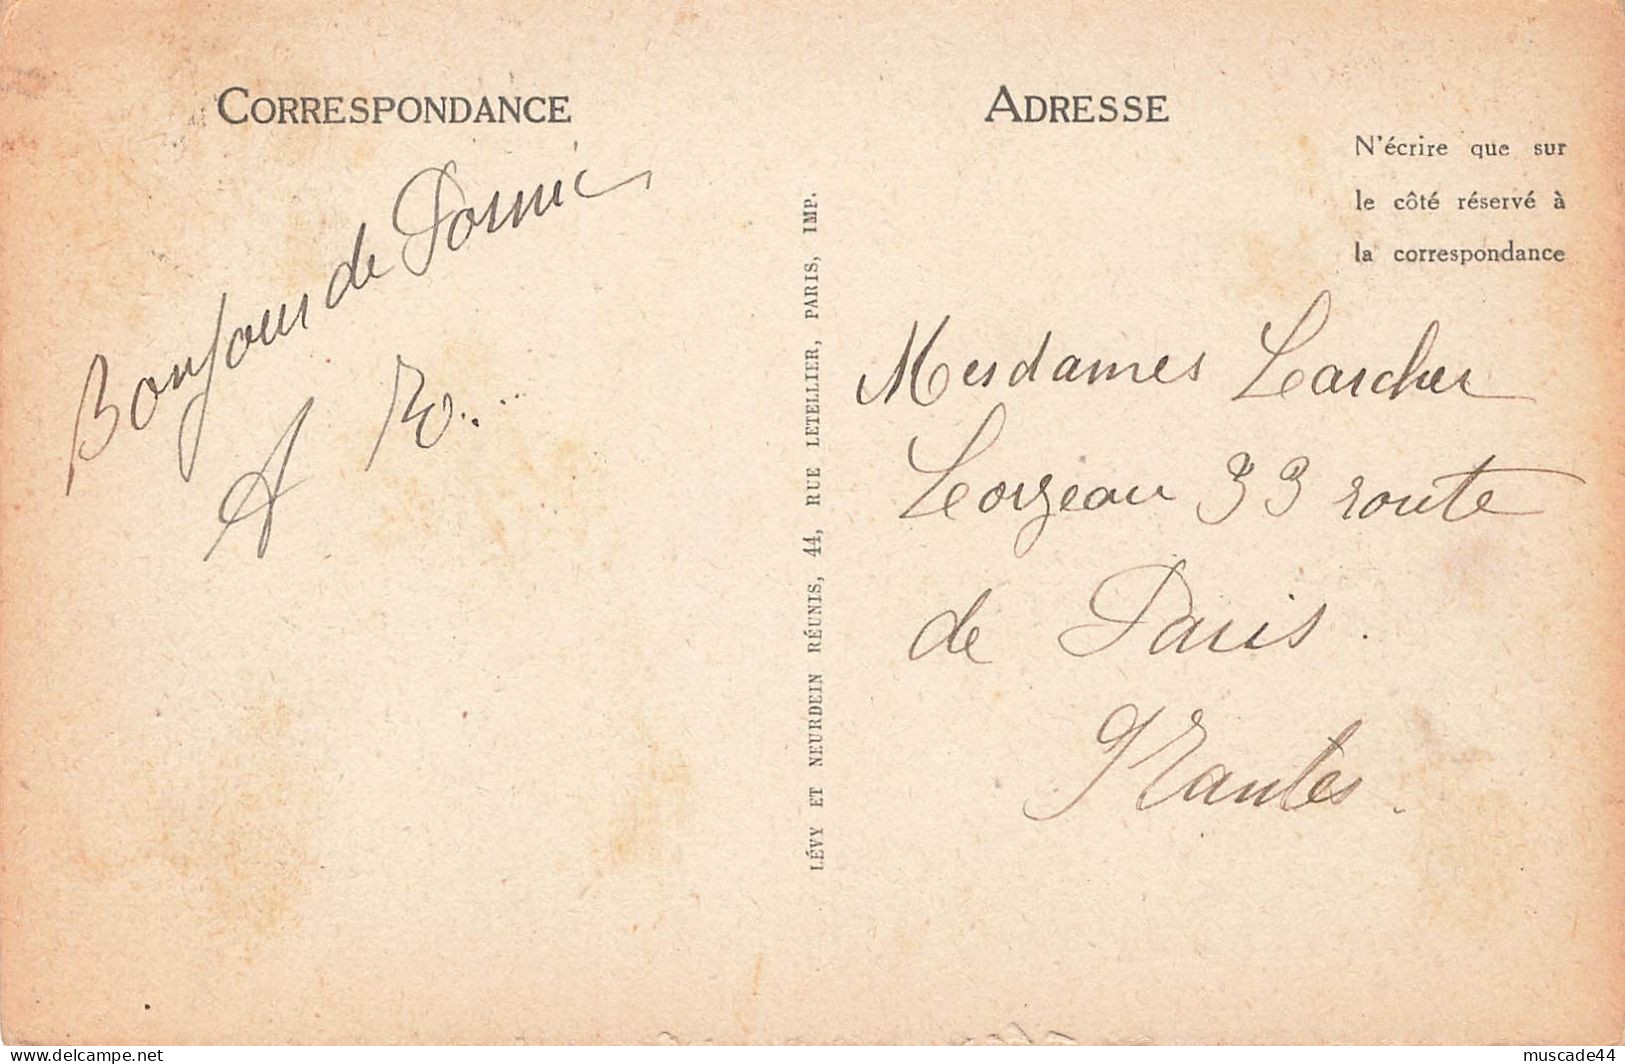 CORRESPONDANCE
Bonjour de Pornic
A R...
LÉVY ET NEURDEIN RÉUNIS, 44, RUE LETELLIER, PARIS, IMP.
ADRESSE
N'écrire que sur
le côté réservé à
la correspondance
Mesdames Larcher
Lorzeau 33 route
de Paris.
Nantes.
delcampe.net
muscade44